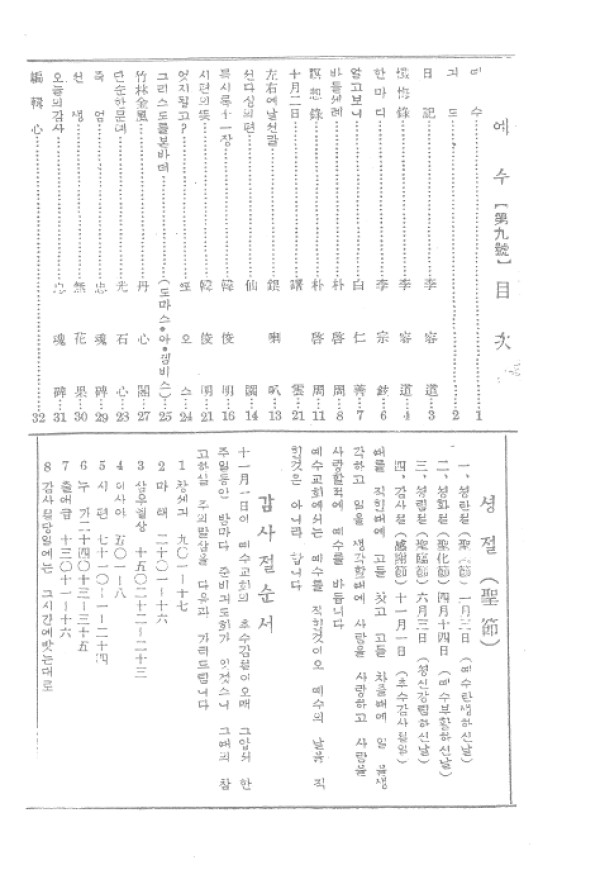 예수【第九號】目次
예수……1
긔도……2
日記……李容道……3
懺悔錄……李容道……4
한마듸……李宗鉉……6
알고보니……白仁善……7
바들세례……朴啓周……8
瞑想錄……朴啓周……11
十月二日……雲……21
左右에날선칼……銀喇叭……13
선다싱의편……仙園……14
묵시록十一장……韓俊明……16
시편의뜻……韓俊明……21
엇지될고?……오스……24
그리스도를본바더……(도마스•아•켐비스)……25
竹林金風……丹心閣……27
단순한문뎨……光石心……28
죽엄……忠魂碑……29
천생……無花果……30
오늘의감사……忠魂碑……31
編輯心……32
성절(聖節)
一、성탄절(聖誕節) 一月六日 (예수탄생하신날)
二、성화절(聖化節) 四月十四日 (예수부활하신날)
三、성림절(聖臨節) 六月三日 (성신강림하신날)
四、감사절(感謝節) 十一月一日 (추수감사절일)
때를 직힐때에 고들 찻고 고들 차즐때에 일 을생
각하고 일을 생각할때에 사람을 사랑하고 사람을
사랑할때에 예수를 바듭니다
예수교회에서는 예수를 직힐것이오 예수의 날을 직
힐것은 아니라 합니다
감사절순서
十一月一日이 예수교회의 추수감절이오매 그압서 한
주일동안 밤마다 준비긔도회가 잇겟스니 그때의 참
고하실 주의말삼을 다음과 가려드립니다
1 창세긔 九〇一―十七
2 마태 二十〇一―十六
3 삼우엘상 十五〇二十二―二十三
4 이사야 五〇一―八
5 시편 七十一〇―一―二十四
6 누가 二十四〇十三―三十五
7 출애급 十三〇十一―十六
8 감사절당일에는 그시간에맛는대로